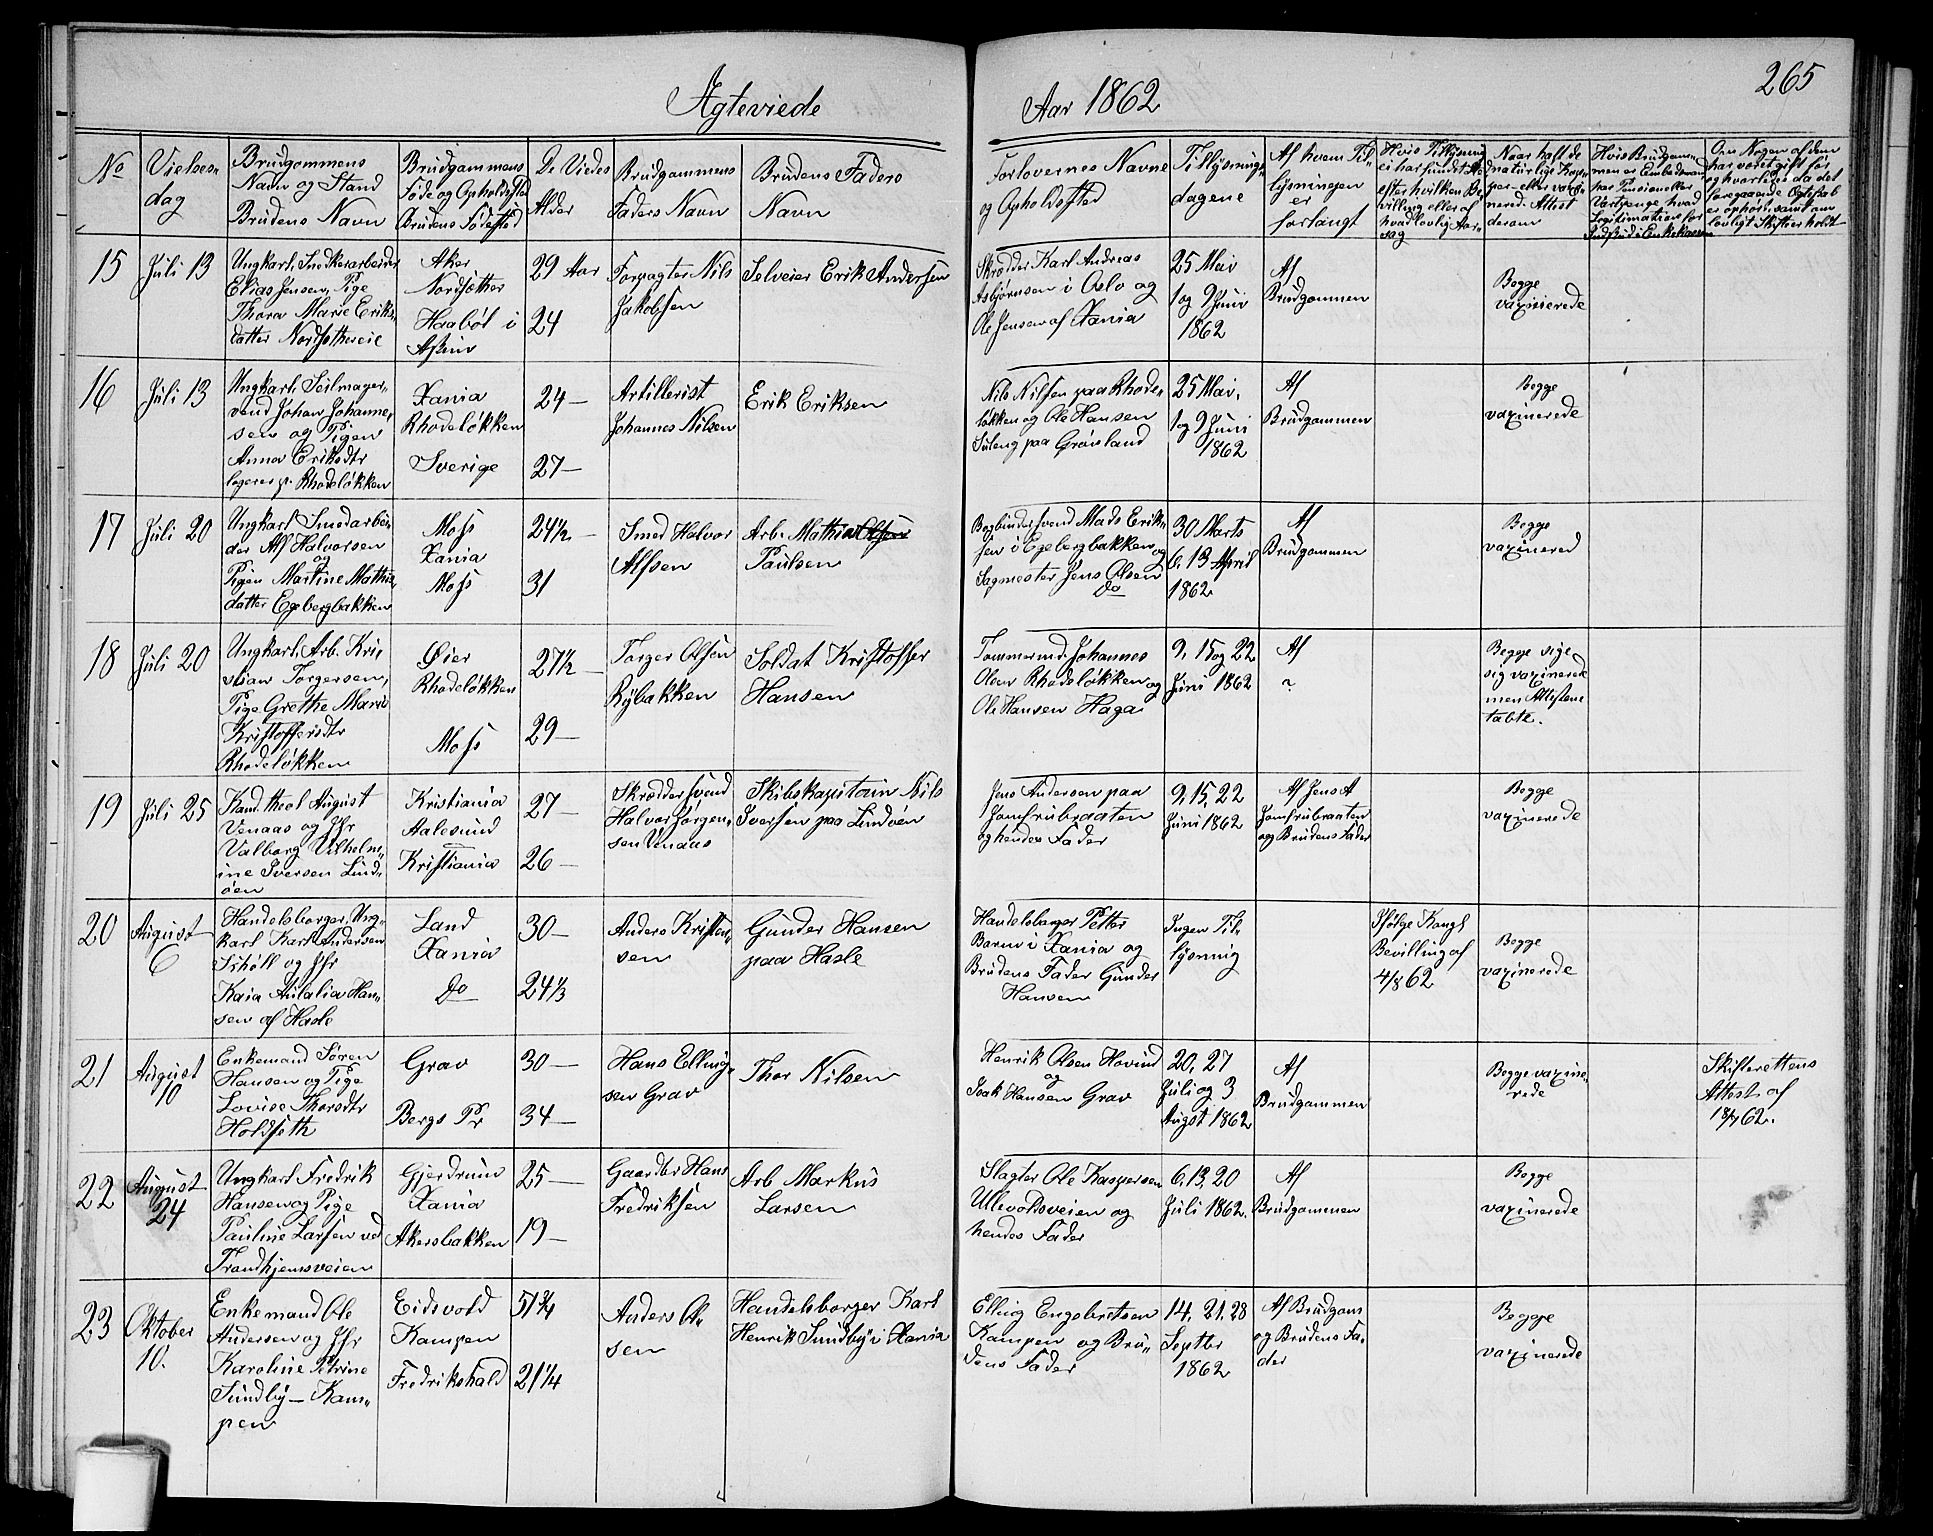 265
Agteviede
Aar 1862
No
Vielses-
dag
Brudgommens
Navn og Stand
Brudens Navn
Brudgommens
Føde og Opholdssted
Brudens Fødested
De Viedes
Alder
Brudgommens
Faders Navn
Brudens Faders
Navn
Forlovernes Navne
og Opholdssted
Tillysnings-
dagene
Af hvem Til-
lysningen
er
forlangt
Hvis Tillysning
ei har fundet Sted
efter hvilken Be-
villing eller af
hvad lovlig Aar-
sag
Naar haft de
naturlige Kop-
per eller vaxi-
nered. Attest
derom
Hvis Brudgom-
men er Embedsmand
har Pension eller
Vartpenge hvad
Legitimation for
Indskud i Enkekassen
Om Nogen af dem
har været gift før
og hvorledes da det
foregaaende Ægteskab
er ophørt samt om
lovligt Skifte er holdt
15
Juli 13
Ungkarl, Snedkerarbeider
Elias Jensen, Pige
Thora Marie Eriks-
datter Nordsethereie
Aker
Nordsæther
Haabøl i
Askim
29 Aar
24
Forpagter Nils
Jakobsen
Selveier Erik Andersen
Skrædder Karl Andreas
Asbjørnsen i Oslo og
Ole Jensen af Xania
25 Mai
1 og 9 Juni
1862
Af
Brudgommen
Begge
vaxinerede
16
Juli 13
Ungkarl, Seilmager-
svend Johan Johanne-
sen og Pigen
Anna Eriksdtr
logeres p. Rhodeløkken
Xania
Rhodeløkken
Sverige
24 —
27 —
Artillerist
Johannes Nilsen
Erik Eriksen
Nils Nilsen paa Rhode-
løkken og Ole Hansen
Suleng paa Grønland
25 Mai,
1 og 9 Juni
1862
Af
Brudgommen
Begge
vaxinerede
17
Juli 20
Ungkarl Smedarbei-
der Alf Halvorsen
og
Pigen Martine Mathia-
datter Egebergbakken
Moss
Xania
Moss
24½ —
31
Smed Halvor
Alfsen
Arb. Mathias Olsen
Paulsen
Bogbindersvend Mads Erik-
sen i Egebergbakken og
Sagmester Jens Olsen
Do
30 Marts
6, 13 April
1862
Af
Brudgommen
Begge
vaxinered
18
Juli 20
Ungkarl, Arb. Kri-
stian Torgersen,
Pige Grethe Marie
Kristoffersdtr
Rhodeløkken
Øier
Rhodeløkken
Moss
27½ —
29 —
Torger Olsen
Rybakken
Soldat Kristoffer
Hansen
Tømmermd. Johannes
Olsen Rhodeløkken og
Ole Hansen Haga
9, 15 og 22
Juni 1862
Af
?
Begge sige
sig vaxinerede
men Attesterne
tabte.
19
Juli 25
Kand. theol August
Venaas og Jfr
Valborg Vilhelm-
ine Iversen Lind-
øen
Kristiania
Aalesund
Kristiania
27 —
26 —
Skræddersvend
Halvor Jørgen-
sen Venaas
Skibskaptain Nils
Iversen paa Lindøen
Jens Andersen paa
Jomfrubraaten
og hendes Fader
9, 15, 22
Juni 1862
Af Jens A
Jomfrubraaten
og Brudens Fader
Begge
vaxinerede
20
August
6
Handelsborger, Ung-
karl Karl Andersen
Schøll og Jfr
Kaia Amalia Han-
sen af Hasle
Land
Xania
Do
30 —
24⅓
Anders Kristen-
sen
Gunder Hansen
paa Hasle
Handelsborger Petter
Barum i Xania og
Brudens Fader Gunder
Hansen
Ingen Til-
lysning
Ifølge Kongl
Bevilling af
4/8 62
Begge
vaxinerede
21
August
10
Enkemand Søren
Hansen og Pige
Lovise Thorsdtr
Holdseth
Grav
Bergs Pr
30 —
34 —
Hans Elling-
sen Grav
Thor Nilsen
Henrik Olsen Hovind
og
Isak Hansen Grav
20, 27
Juli og 3
August 1862
Af
Brudgommen
Begge vaxine-
rede
Skifterettens
Attest af
18/7 62.
22
August
24
Ungkarl Fredrik
Hansen og Pige
Pauline Larsen ved
Trondhjemsveien
Gjerdrum
Xania
Akersbakken
25 —
19 —
Gaardbr Hans
Fredriksen
Arb Markus
Larsen
Slagter Ole Kaspersen
Ullevoldsveien og
hendes Fader
6, 13, 20
Juli 1862.
Af
Brudgommen
Begge
vaxinerede
23
Oktober
10.
Enkemand Ole
Andersen og Jfr
Karoline Petrine
Sundby — Kam-
pen
Eidsvold
Kampen
Fredrikshald
51¾
21¼
Anders Ol-
sen
Handelsborger Karl
Henrik Sundby i Xania
Elling Engebretsen
Kampen og Bru-
dens Fader
14, 21, 28
Septbr
1862
Af Brudgom
og Brudens Fa-
der
Begge
vaxinerede